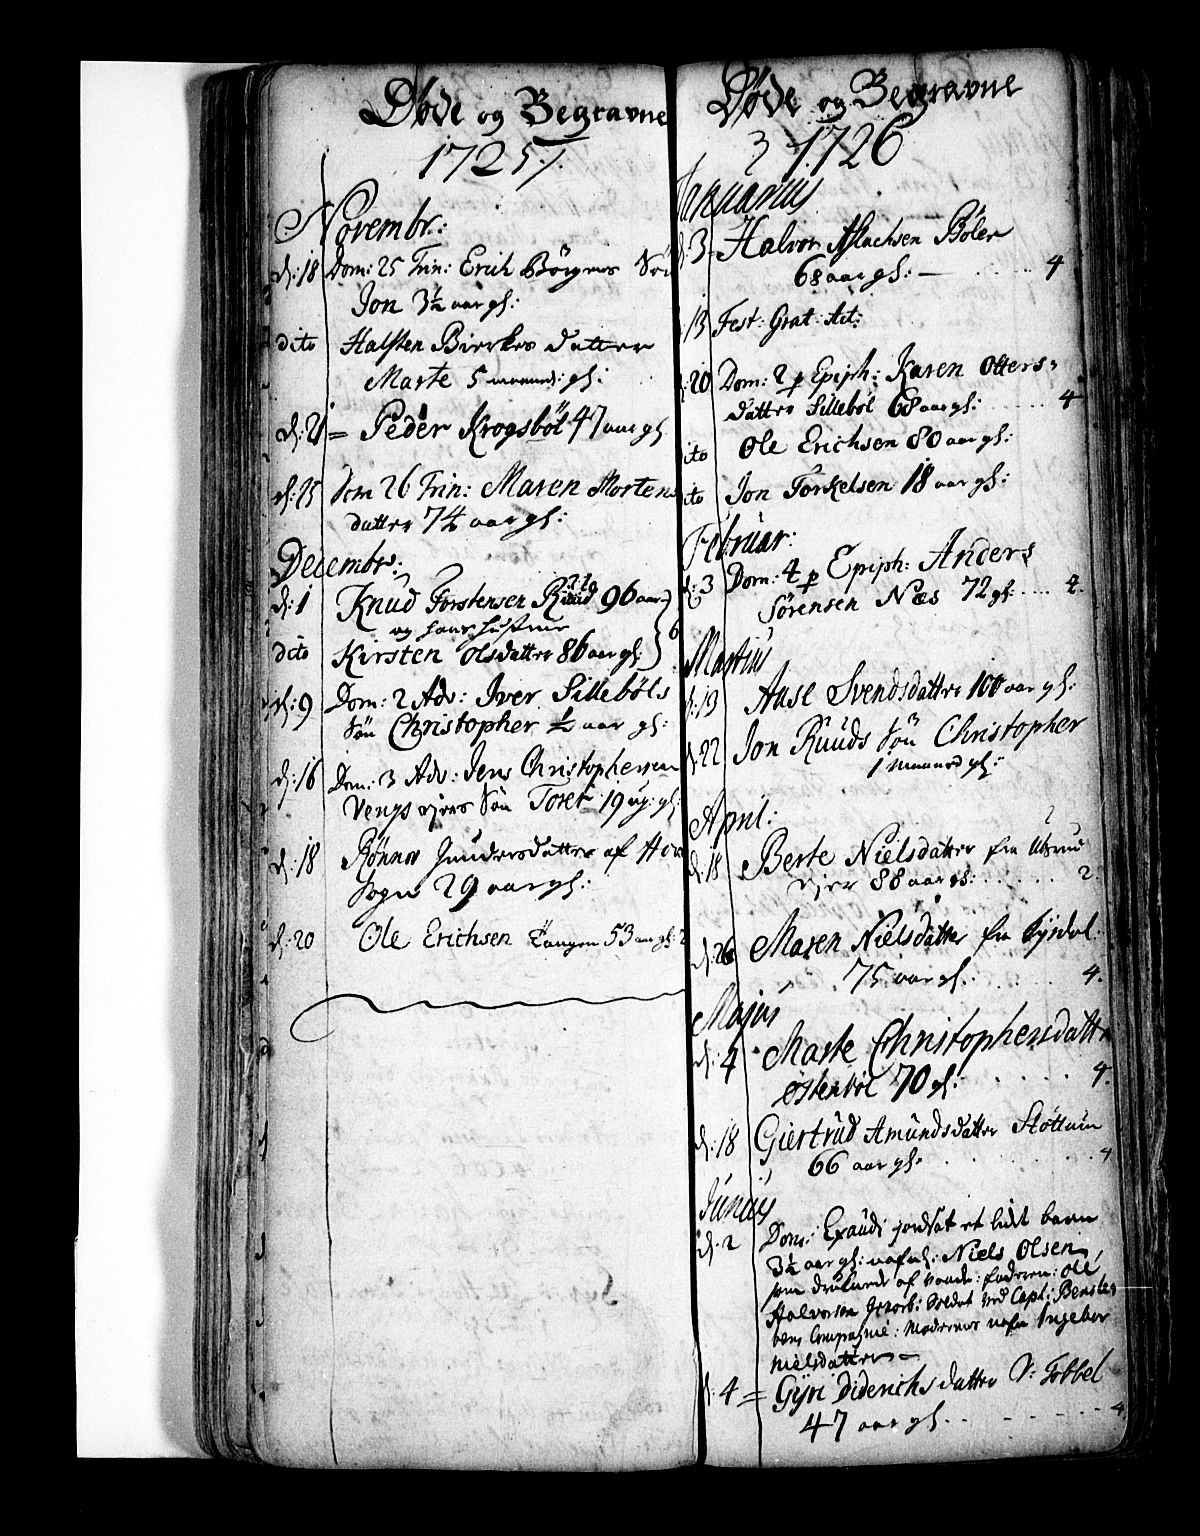 Døde og Begravne
1725
Novembr:
d: 18 Dom: 25 Trin: Erich Börgers Sön
Jon 3½ aar gl:
dito Halsten Bierkes datter
Marte 5 maan: gl:
d: 21 = Peder Krogsböl 47 aar gl
d: 25 Dom 26 Trin: Maren Mortens
datter 74 aar gl:
Decembr:
d: 1 Knud Torstensen Ruud 96 aar
og hans hustrue
dito Kirsten Olsdatter 86 aar gl: 6
d: 9 Dom: 2 Adv: Iver Sillebôls
Sön Christopher ½ aar gl:
d: 16 Dom: 3 Adv: Jens Christophersen
Sön Toret 19 ug: gl:
d: 18 Rönnou Gundersdatter af
Sogn 29 aar gl:
d: 20 Ole Erichsen Tangen 53 aar gl: 2
Døde og Begravne
1726
Januarius
d: 3 = Halvor Aslachsen Böler
68 aar gl: 4
13 Fest: Grat: Act:
d: 20 Dom: 2 p Epiph: Karen Otters-
datter Sillebôl 68 aar gl: 4
dito Ole Erichsen 80 aar gl:
dito Jon Torkelsen 18 aar gl:
Februar:
d: 3 Dom: 4 p Epiph: Anders
Sörensen Næs 72 gl: 4
Martius
d: 13 Aase Svendsdatter 100 aar gl:
d: 22 Jon Ruuds Sön Christopher
1 maaned gl:
April:
d: 18 Berte Nielsdatter fra
88 aar gl: 2
d: 26 Maren Nielsdatter fra
75 aar gl: 4.
Majus
d: 4 Marte Christophersdatter
Østenböl 70 gl: 4.
d: 18 Giertrud Amundsdatter Slöttum
66 aar gl: 4
Junius
d: 2 Dom: Exaudi jordsat et lidet barn
3½ aar gl: nafnl: Niels Olsen,
som druknede af vaade: faderen: Ole
Halvorsen Soldat ved Capt:
Compagnie: Moderens nafn Ingebor
Nielsdatter –
d: 4 = Gÿri Diderichs datter V: Tobbel
47 aar gl: 4